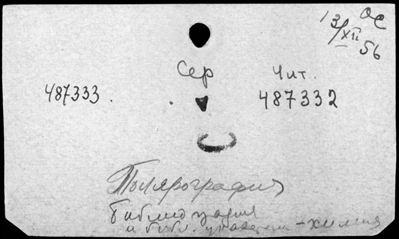 13/XII 56
ОС
Сер
Чит.
487333.
487332
Полярография
библиография
и библ. указатели - химия